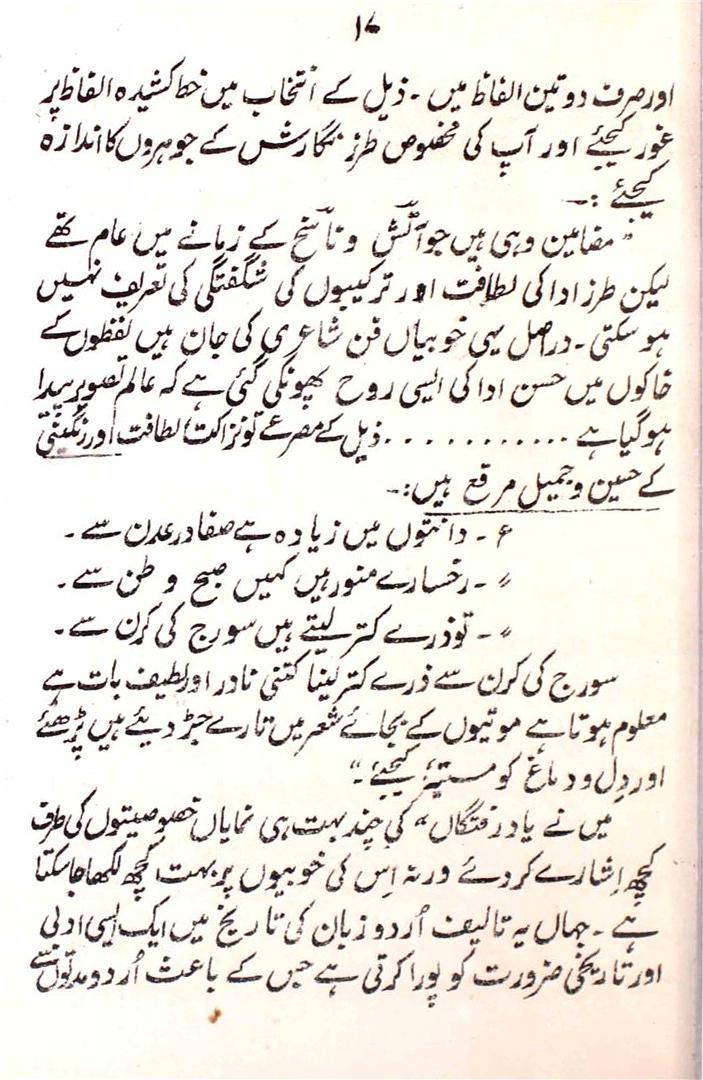 ۱۷
اور صرف دو تین الفاظ میں ۔ ذیل کے انتخاب میں خط کشیدہ الفاظ پر
غور کیجئے اور آپ کی مخصوص طرز نگارش کے جوہروں کا اندازہ
کیجئے :۔
" مضامین وہی ہیں جو آتش و ناسخ کے زمانے میں عام تھے
لیکن طرز ادا کی لطافت اور ترکیبوں کی شگفتگی کی تعریف نہیں
ہو سکتی ۔ دراصل یہی خوبیاں فن شاعری کی جان ہیں لفظوں کے
خاکوں میں حسن ادا کی ایسی روح پھونکی گئی ہے کہ عالم تصویر پیدا
ہو گیا ہے ............ ذیل کے مصرعے تو نزاکت لطافت اور رنگینی
کے حسین و جمیل مرقع ہیں :۔
ع ۔ دانتوں میں زیادہ ہے صفا در عدن سے ۔
〃 ۔ رخسارے منور ہیں کہیں صبح وطن سے ۔
〃 ۔ تو ذرے کتر لیتے ہیں سورج کی کرن سے ۔
سورج کی کرن سے ذرے کتر لینا کتنی نادر اور لطیف بات ہے
معلوم ہوتا ہے موتیوں کے بجائے شعر میں تارے جڑ دیئے ہیں پڑھئے
اور دِل و دماغ کو مستنیر کیجئے ۔"
میں نے یادرفتگاں" کی چند بہت ہی نمایاں خصوصیتوں کی طرف
کچھ اِشارے کر دئے ورنہ اِس کی خوبیوں پر بہت کچھ لکھا جا سکتا
ہے ۔ جہاں یہ تالیف اُردو زبان کی تاریخ میں ایک ایسی ادبی
اور تاریخی ضرورت کو پورا کرتی ہے جس کے باعث اُردو مدتوں سے